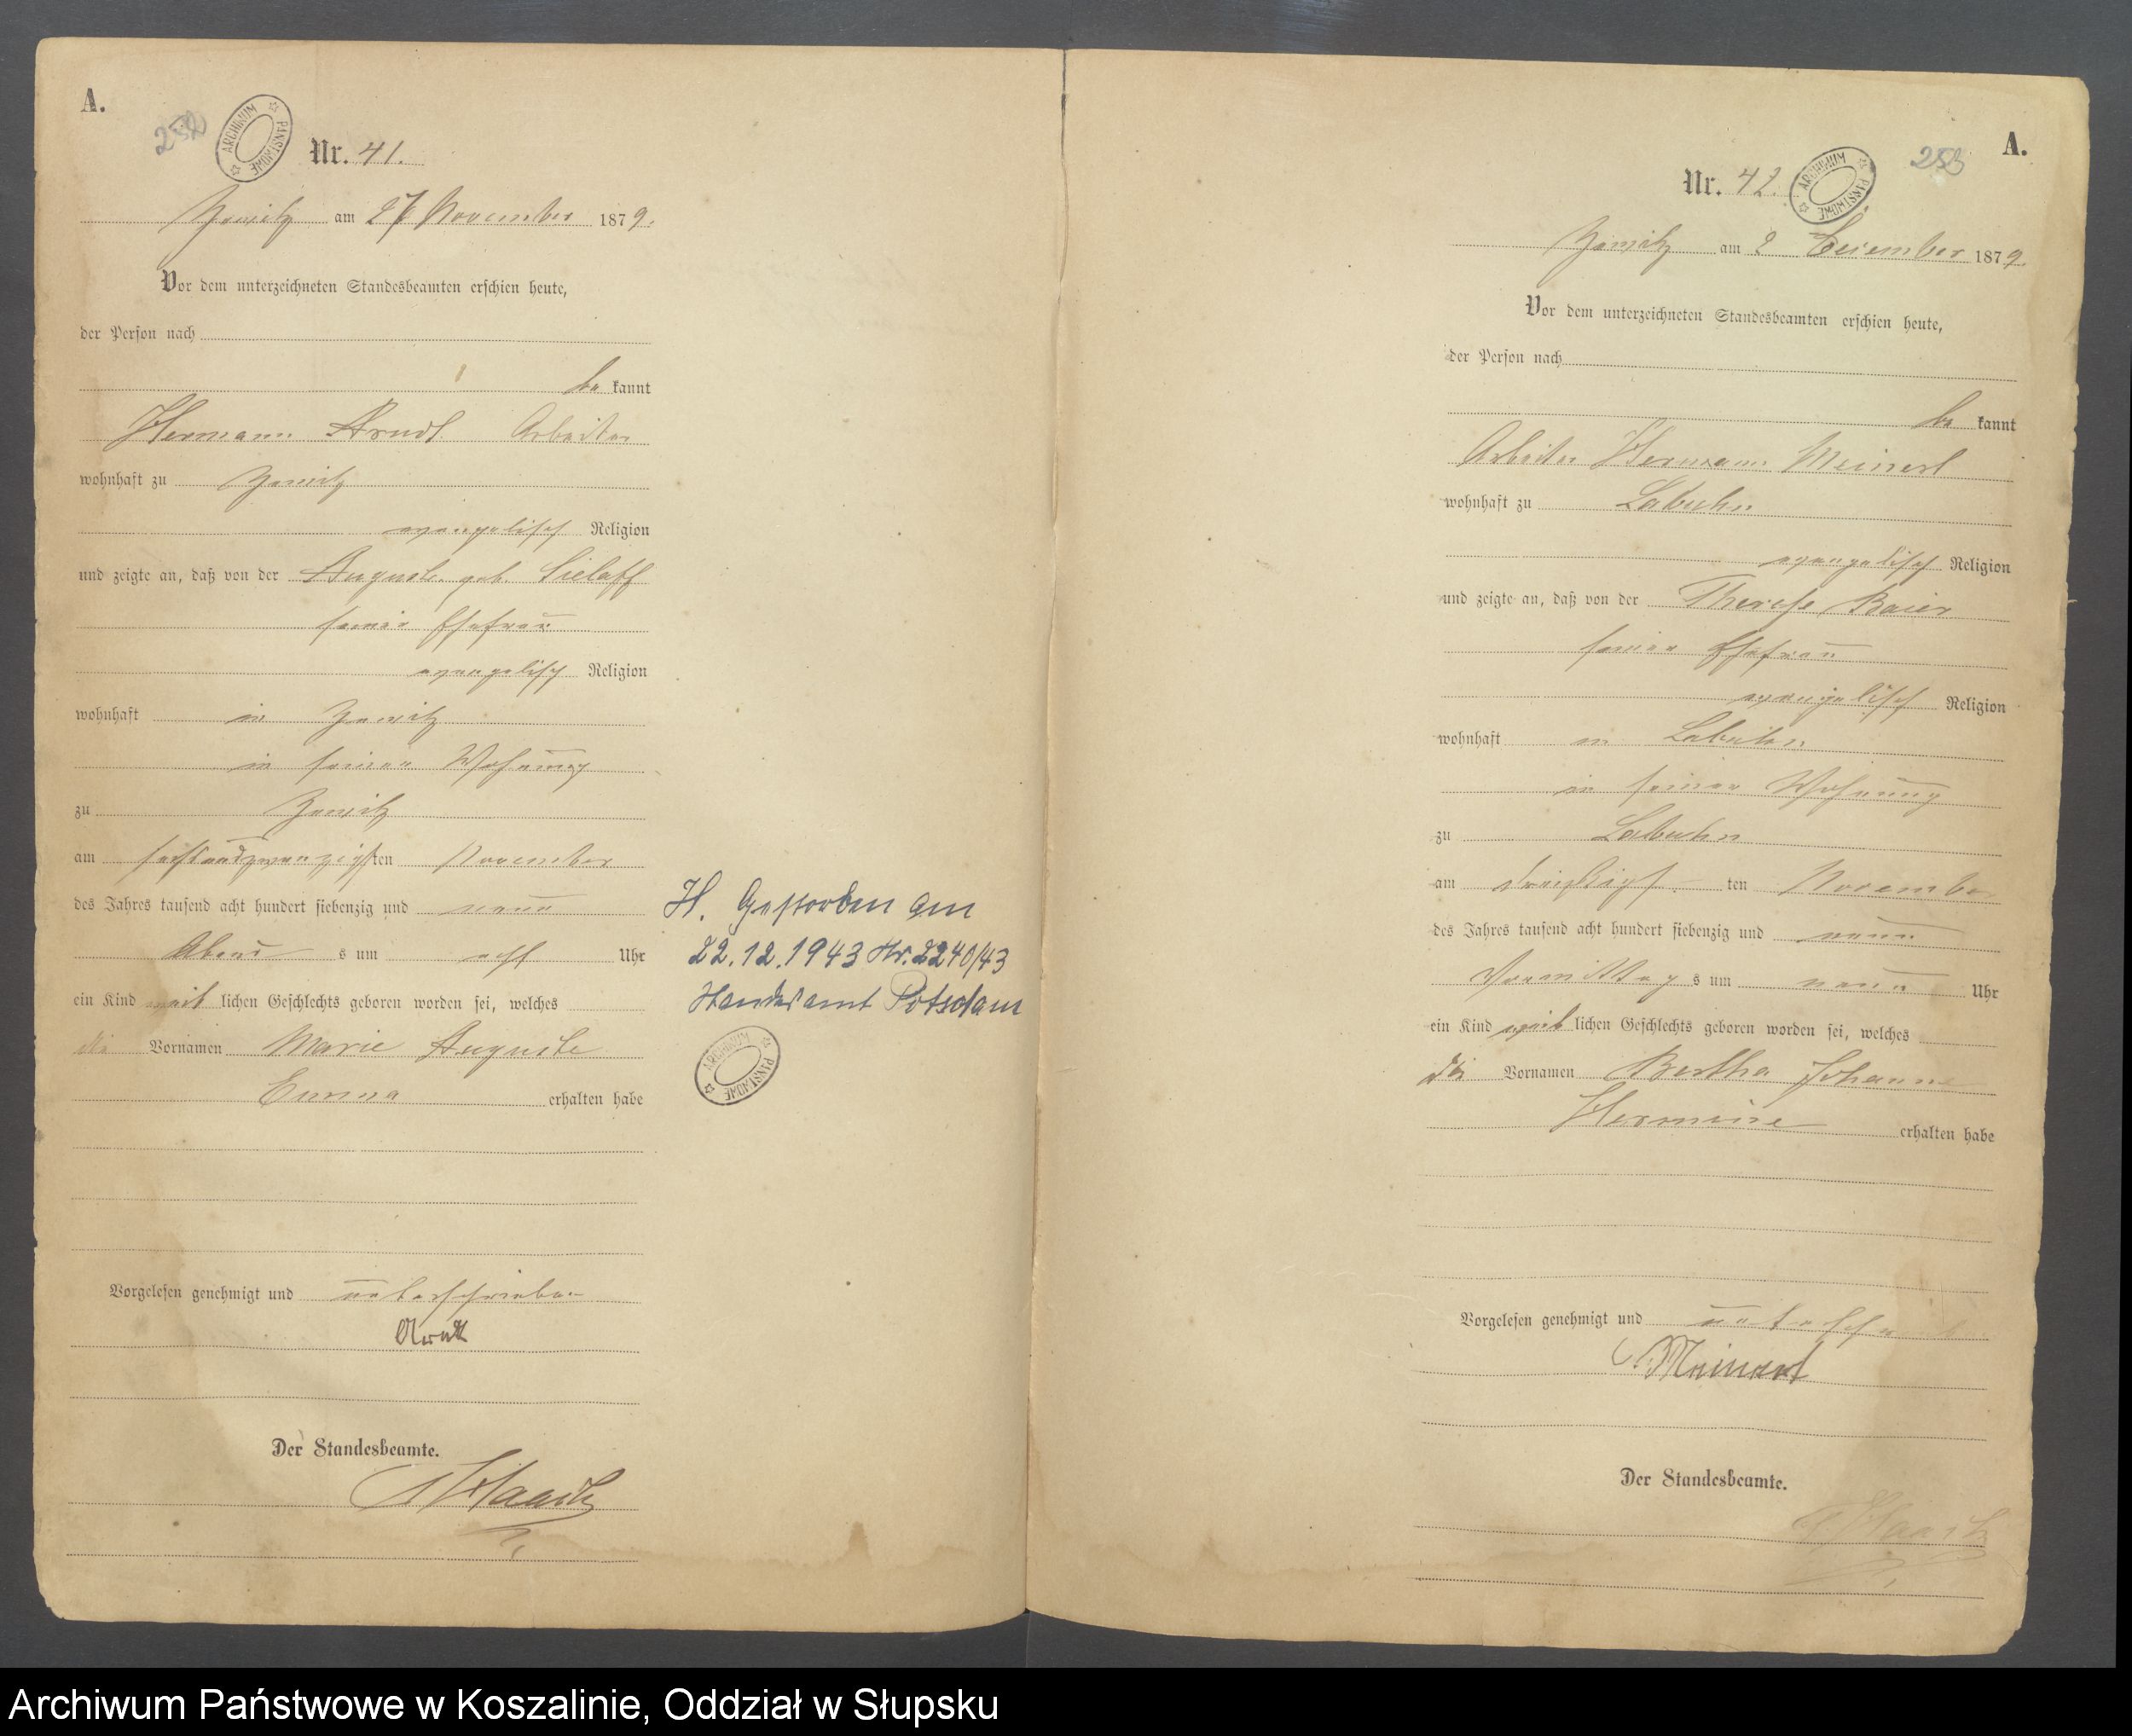 A.
252
ARCHIWUM PAŃSTWOWE
Nr. 41.
Zewitz am 27 November 1879.
Vor dem unterzeichneten Standesbeamten erschien heute,
der Person nach
be kannt
Hermann Arndt Arbeiter
wohnhaft zu Zewitz
evangelisch Religion
und zeigte an, daß von der Auguste geb. Sielaff
seiner Ehefrau
evangelisch Religion
wohnhaft in Zewitz
in seiner Wohnung
zu Zewitz
am sechsundzwanzigsten November
des Jahres tausend acht hundert siebenzig und neun
Abend s um acht Uhr
ein Kind weib lichen Geschlechts geboren worden sei, welches
die Vornamen Marie Auguste
Emma erhalten habe
Vorgelesen genehmigt und unterschrieben
Arndt
Der Standesbeamte.
H. Gestorben am
22.12.1943 Nr. 2240/43
Standesamt Potsdam
ARCHIWUM PAŃSTWOWE
A.
253
Nr. 42.
ARCHIWUM PAŃSTWOWE
Zewitz am 2 Dezember 1879.
Vor dem unterzeichneten Standesbeamten erschien heute,
der Person nach
be kannt
Arbeiter Hermann Meinert
wohnhaft zu Labuhn
evangelisch Religion
und zeigte an, daß von der Therese Baier
seiner Ehefrau
evangelisch Religion
wohnhaft in Labuhn
in seiner Wohnung
zu Labuhn
am dreißigst ten November
des Jahres tausend acht hundert siebenzig und neun
Vormittag s um neun Uhr
ein Kind weib lichen Geschlechts geboren worden sei, welches
die Vornamen Bertha Johanne
Hermine erhalten habe
Vorgelesen genehmigt und
Meinert
Der Standesbeamte.
Archiwum Państwowe w Koszalinie, Oddział w Słupsku